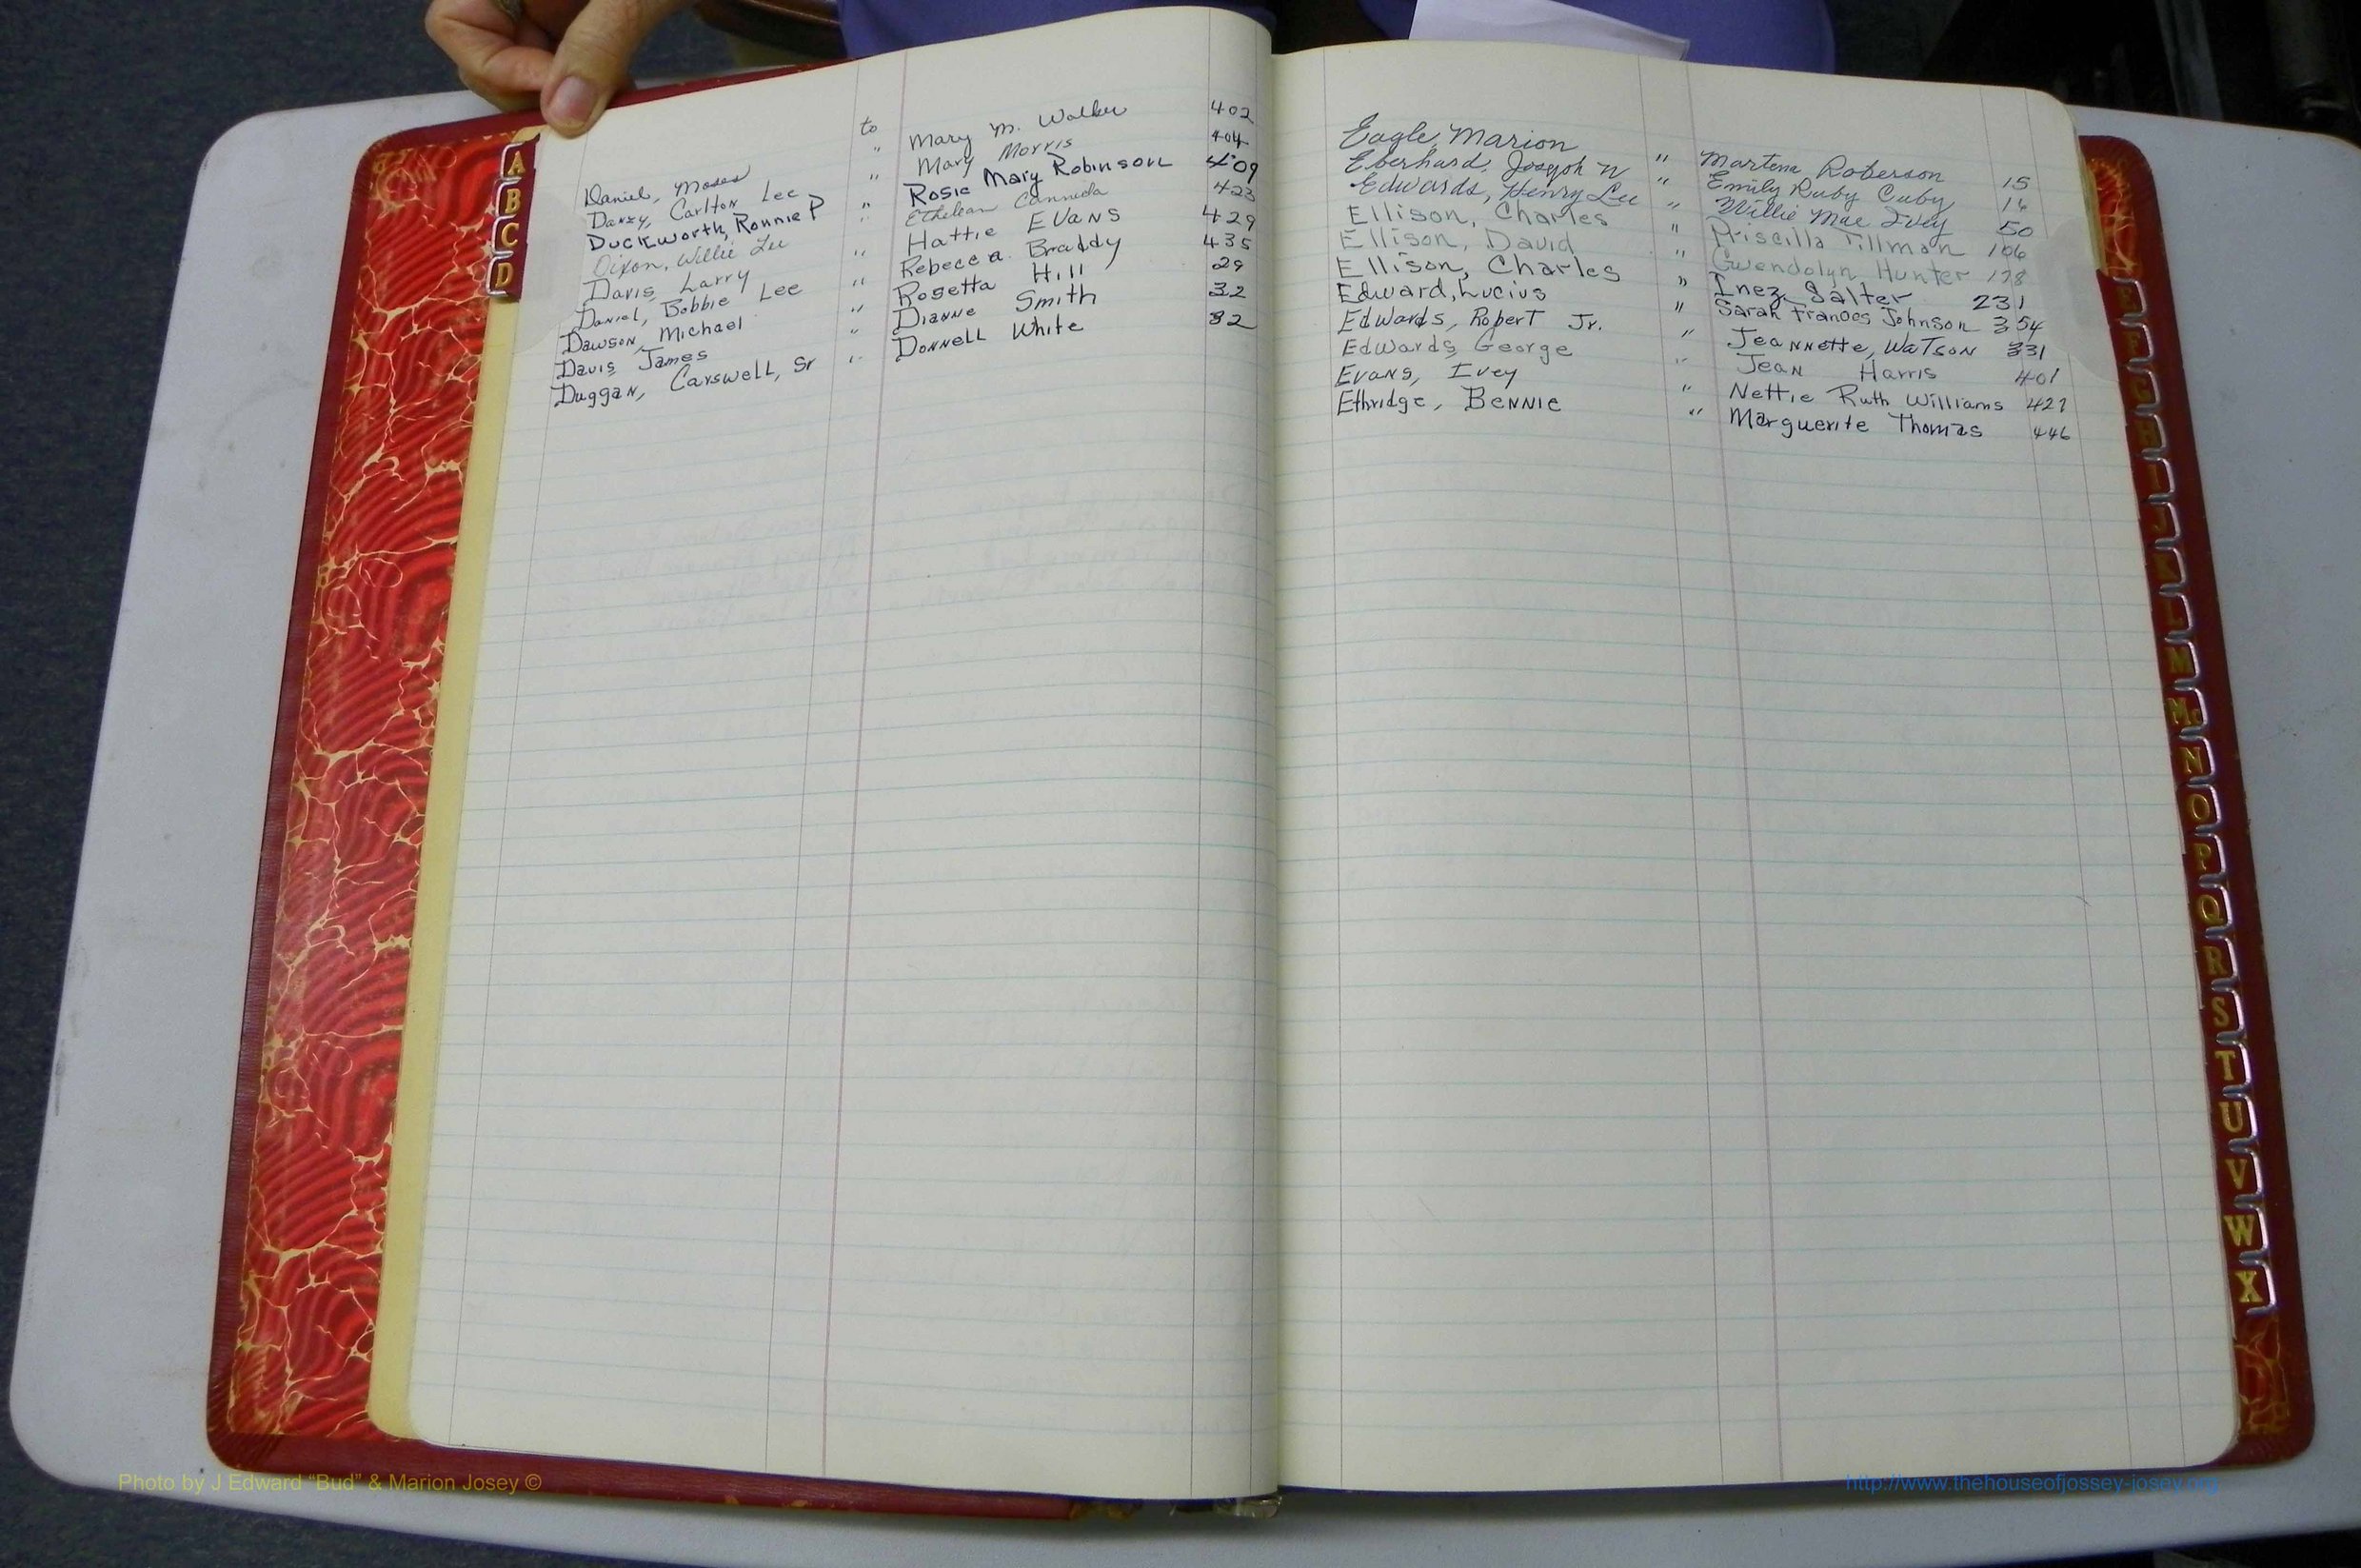 Daniel, Moses to Mary M. Walker 402
Danzy, Carlton Lee " Mary Morris 404
Duckworth, Ronnie P " Rosie Mary Robinson 409
Dixon, Willie Lee " Ethelean Canneda 423
Davis, Larry " Hattie Evans 429
Daniel, Bobbie Lee " Rebecca Braddy 435
Dawson, Michael " Rosetta Hill 29
Davis, James " Dianne Smith 32
Duggan, Carswell, Sr " Donnell White 32
Eagle, Marion " Roberson 15
Eberhard, Joseph N " Emily Ruby Cuby 16
Edwards, Henry Lee " Willie Mae Ivey 50
Ellison, Charles " Priscilla Tillman 106
Ellison, David " Gwendolyn Hunter 178
Ellison, Charles " Inez Salter 231
Edward, Lucius " Sarah Frances Johnson 354
Edwards, Robert Jr. " Jeannette, Watson 331
Edwards, George " Jean Harris 401
Evans, Ivey " Nettie Ruth Williams 427
Ethridge, Bennie " Marguerite Thomas 446
A
B
C
D
E
F
G
H
I
J
K
L
M
Mc
N
O
P
Q
R
S
T
U
V
W
X
Photo by J Edward “Bud” & Marion Josey ©
http://www.thehouseofjossey-josey.org